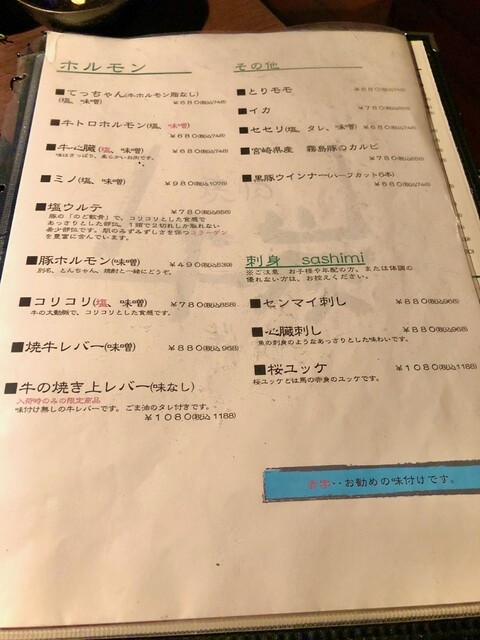 ホルモン
■てっちゃん(牛ホルモン脂なし)
(塩、味噌) ¥680(税込748)
■牛トロホルモン(塩、味噌)
¥680(税込748)
■牛心臓(塩、味噌) ¥680(税込748)
味はさっぱり、柔らかいお肉です。
■ミノ(塩、味噌) ¥980(税込1078)
■塩ウルテ ¥780(税込858)
豚の「のど軟骨」で、コリコリとした食感で
あっさりとした部位。1頭で2切れしか取れない
希少部位です。肌のみずみずしさを保つコラーゲン
を豊富に含んでいます。
■豚ホルモン(味噌) ¥490(税込539)
別名、とんちゃん、焼酎と一緒にどうぞ。
■コリコリ(塩、味噌) ¥780(税込858)
牛の大動脈で、コリコリとした食感です。
■焼牛レバー(味噌) ¥880(税込968)
■牛の焼き上レバー(味なし)
入荷時のみの限定商品
味付け無しの牛レバーです。ごま油のタレ付きです。
¥1080(税込1188)
その他
■とりモモ ¥680(税込748)
■イカ ¥780(税込858)
■セセリ(塩、タレ、味噌) ¥680(税込748)
■宮崎県産 霧島豚のカルビ
¥780(税込858)
■黒豚ウインナー(ハーフカット6本)
¥680(税込748)
刺身 sashimi
※ご注意 お子様や年配の方、または体調の
優れない方は、お控えください。
■センマイ刺し ¥880(税込968)
■心臓刺し ¥880(税込968)
魚の刺身のようなあっさりとした味わいです。
■桜ユッケ ¥1080(税込1188)
桜ユッケとは馬の赤身のユッケです。
赤字・・お勧めの味付けです。